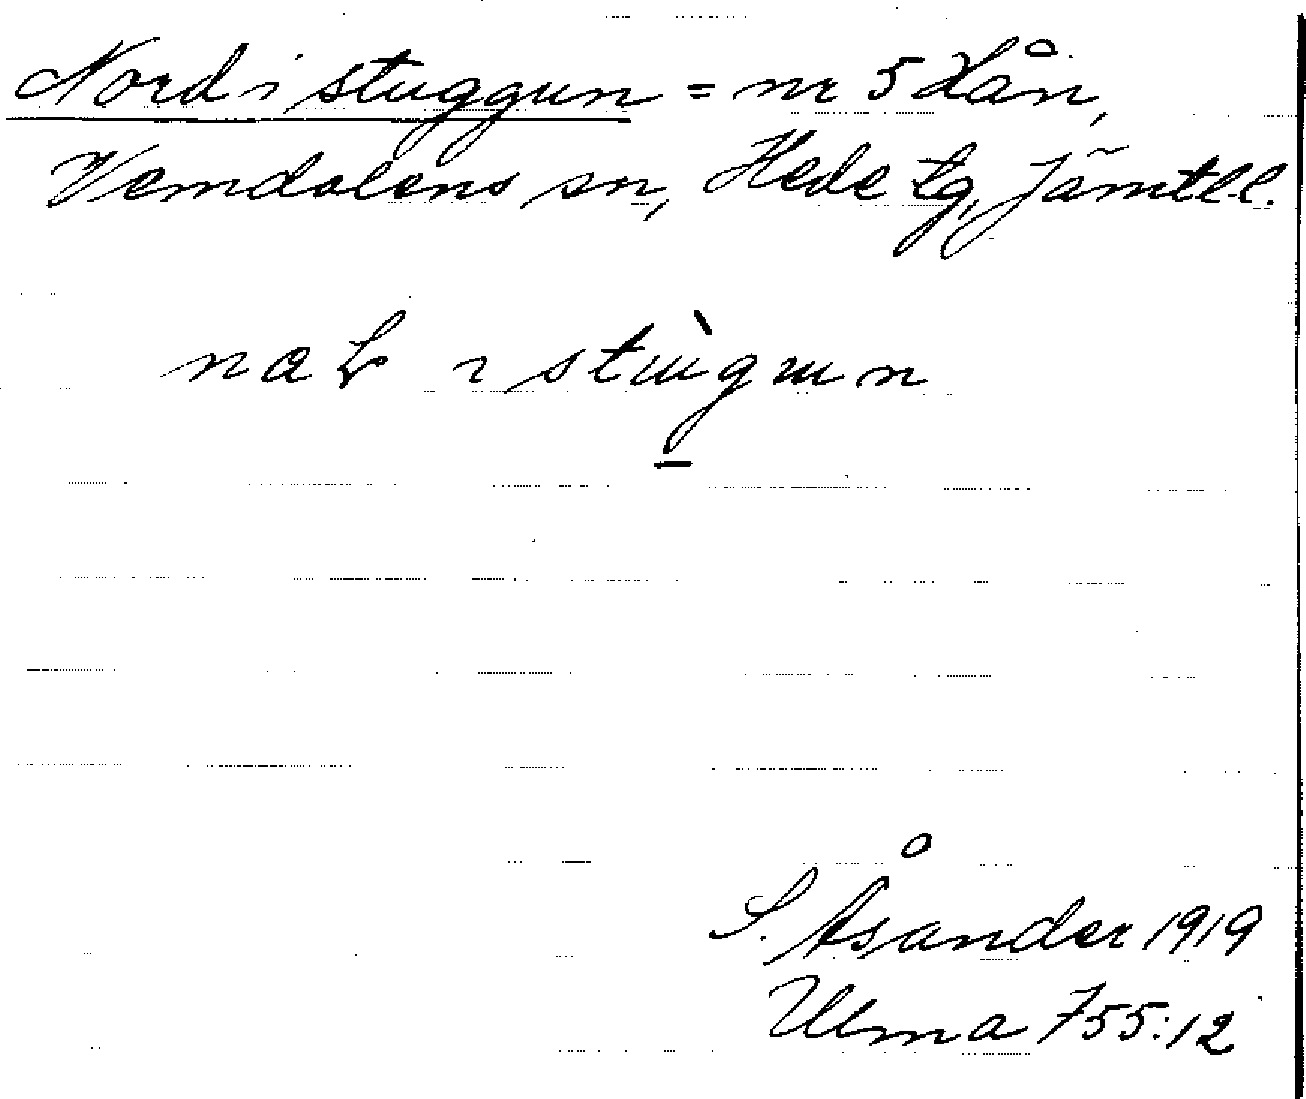 Nord i stuggun = nr 5 Xån,
Vemdalens sn, Hede tg, Jämtl.l.
S. Åsander 1919
Ulma 755:12